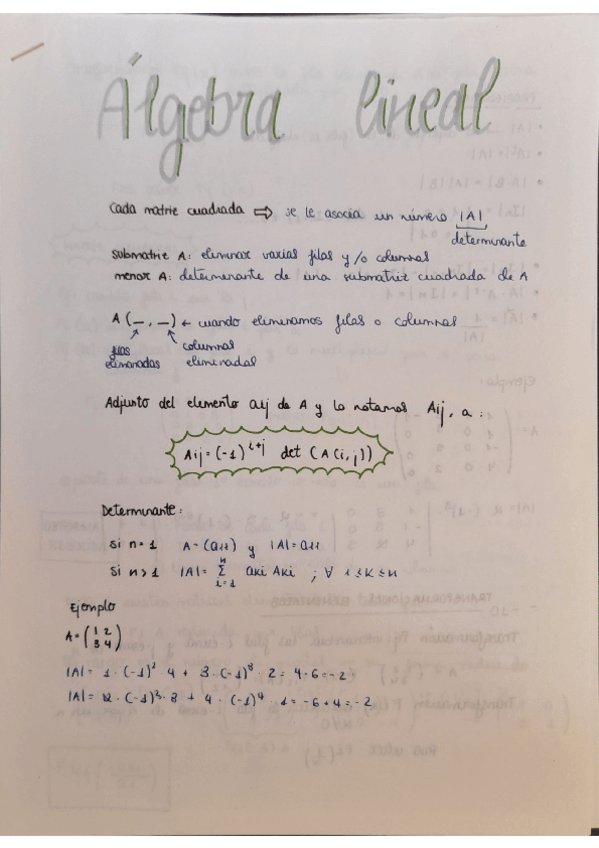 Álgebra lineal
Cada matriz cuadrada ⇒ se le asocia un número |A|
determinante
submatriz A: eliminar varias filas y/o columnas
menor A: determinante de una submatriz cuadrada de A
A (_, _) ← cuando eliminamos filas o columnas
filas eliminadas
columnas eliminadas
Adjunto del elemento aij de A y lo notamos Aij, a:
Aij = (-1)^{i+j} det (A(i,j))
Determinante:
si n=1 A=(a11) y |A|=a11
si n>1 |A|= \sum_{i=1}^{n} aki Aki ; ∀ 1≤K≤n
Ejemplo
A= (1 2
3 4)
|A|= 1 · (-1)² · 4 + 3 · (-1)³ · 2 = 4-6=-2
|A|= 2 · (-1)³ · 3 + 4 · (-1)⁴ · 1 = -6+4=-2